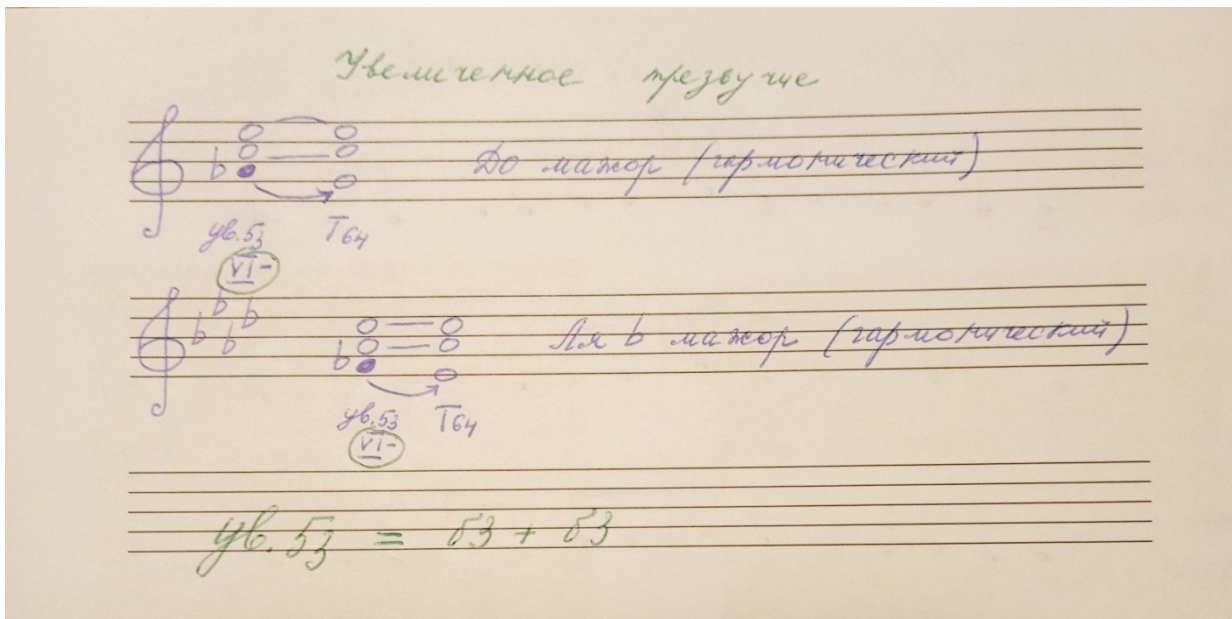 Увеличенное трезвучие
До мажор (гармонический)
ув.53 T64
VI-
Ля b мажор (гармонический)
ув.53 T64
VI-
ув.53 = б3 + б3